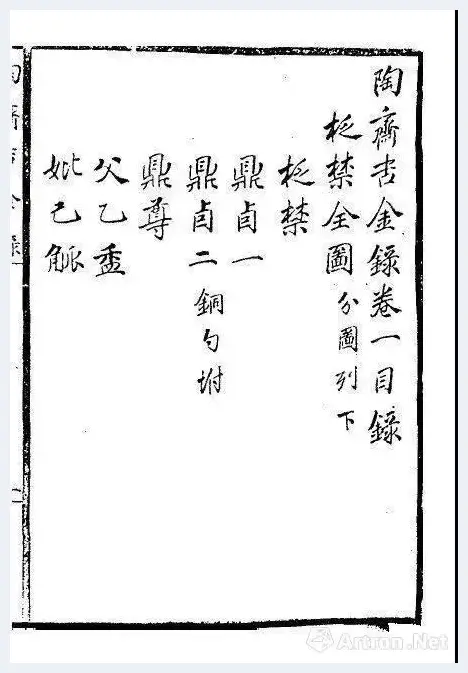 陶齋吉金錄卷一目錄
柉禁全圖 分圖列下
柉禁
鼎卣一
鼎卣二 銅勺坿
鼎尊
父乙盉
妣己觚
Artron.Net